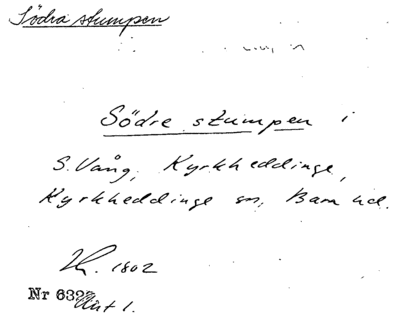 Södra stumpen
Södre stumpen i
S. Vång, Kyrkheddinge,
Kyrkheddinge sn, Bara hd.
1802
Nr 632
Akt 1.